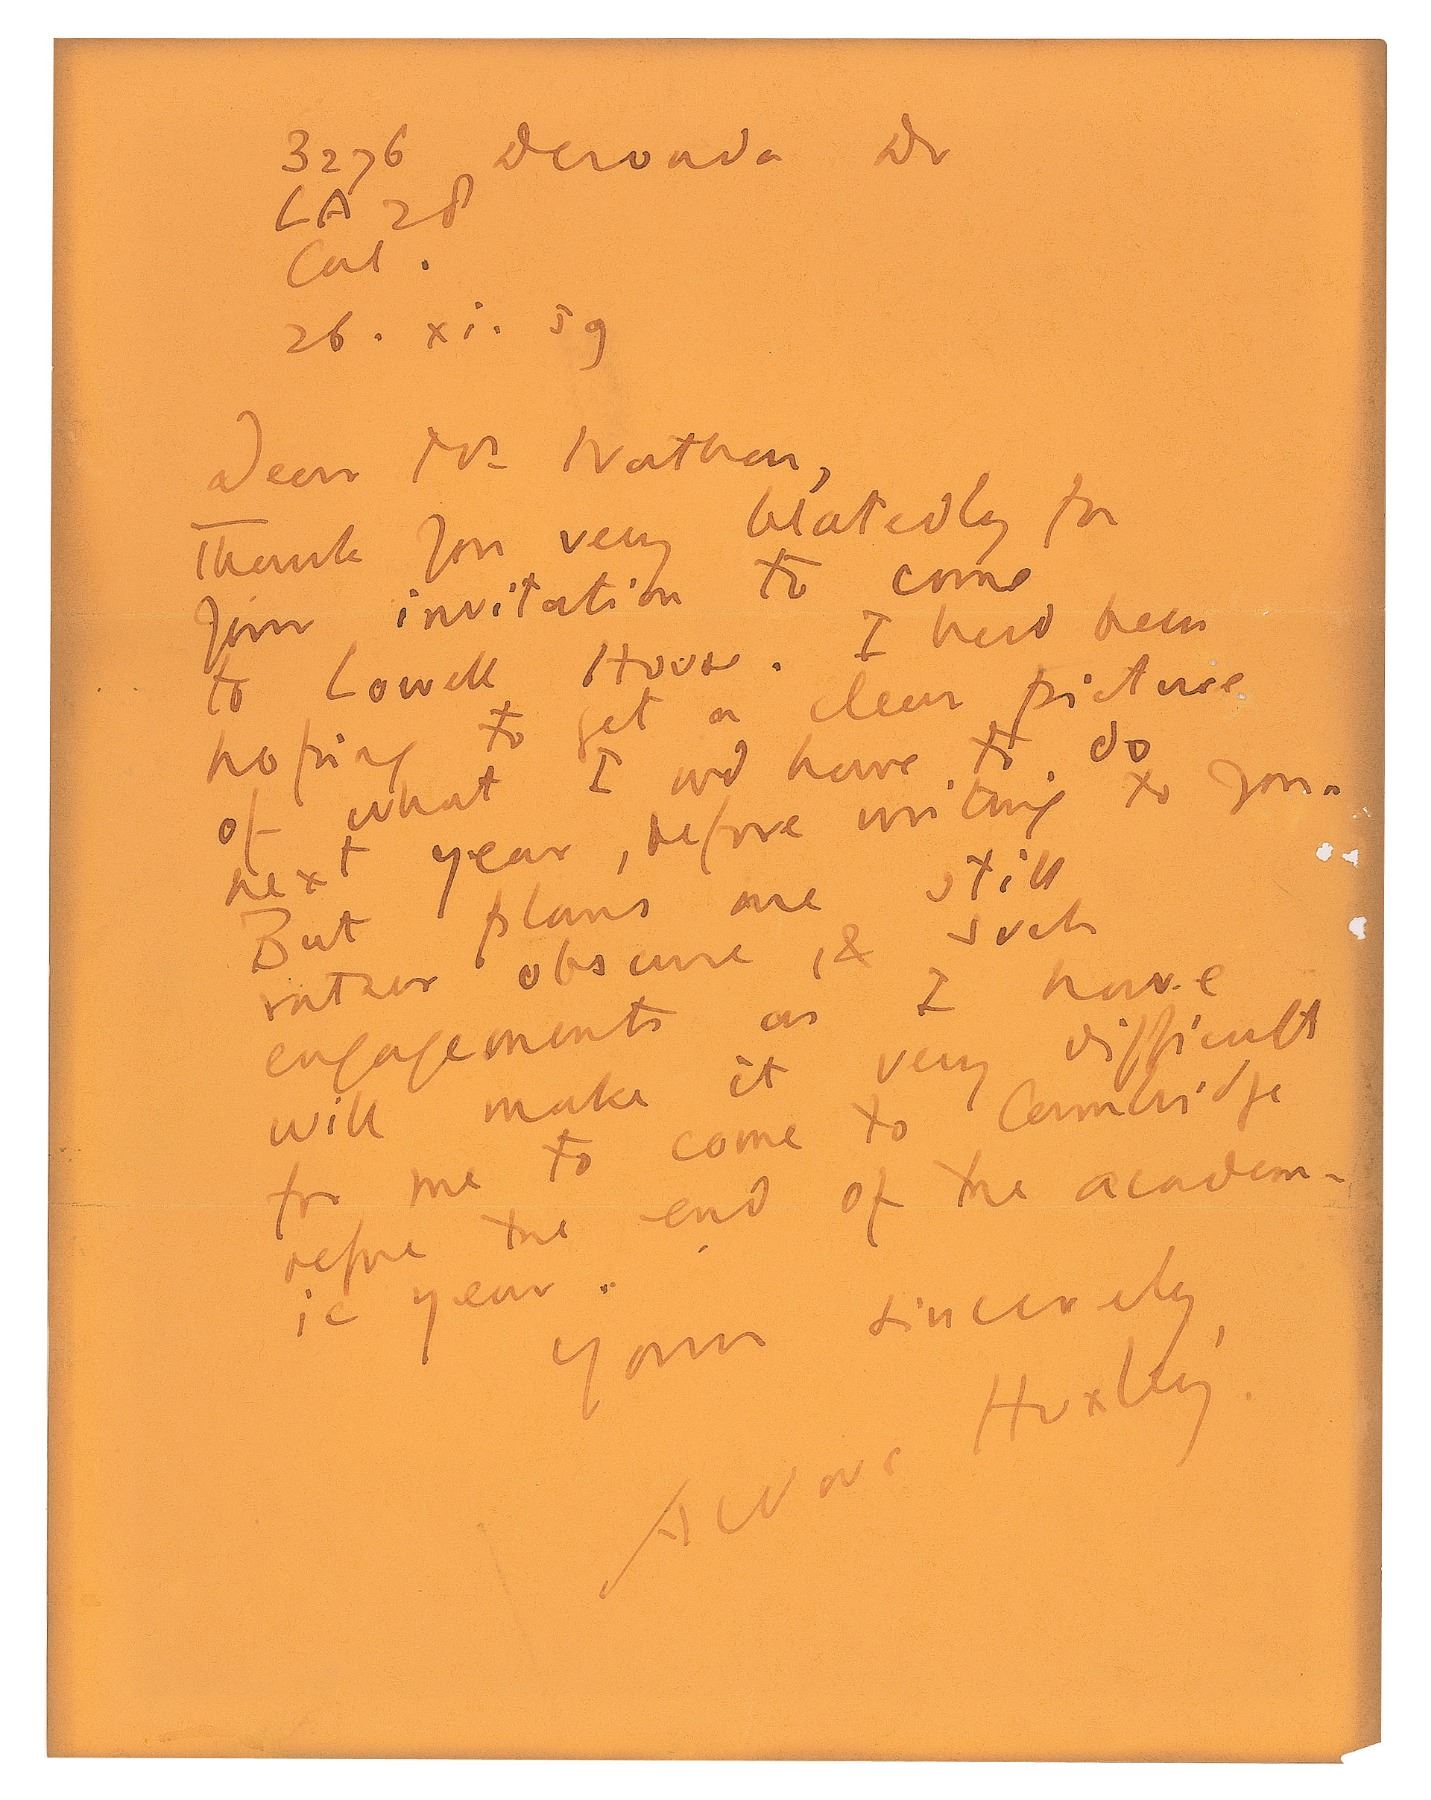 3276 Deronda Dr
LA 28
Cal.
26. xi. 59
Dear Mr Nathan,
Thank you very belatedly for
your invitation to come
to Lowell House. I had been
hoping to get a clear picture
of what I wd have to do
next year, before writing to you.
But plans are still
rather obscure, & such
engagements as I have
will make it very difficult
for me to come to Cambridge
before the end of the academ-
ic year.
Yours sincerely,
Aldous Huxley.